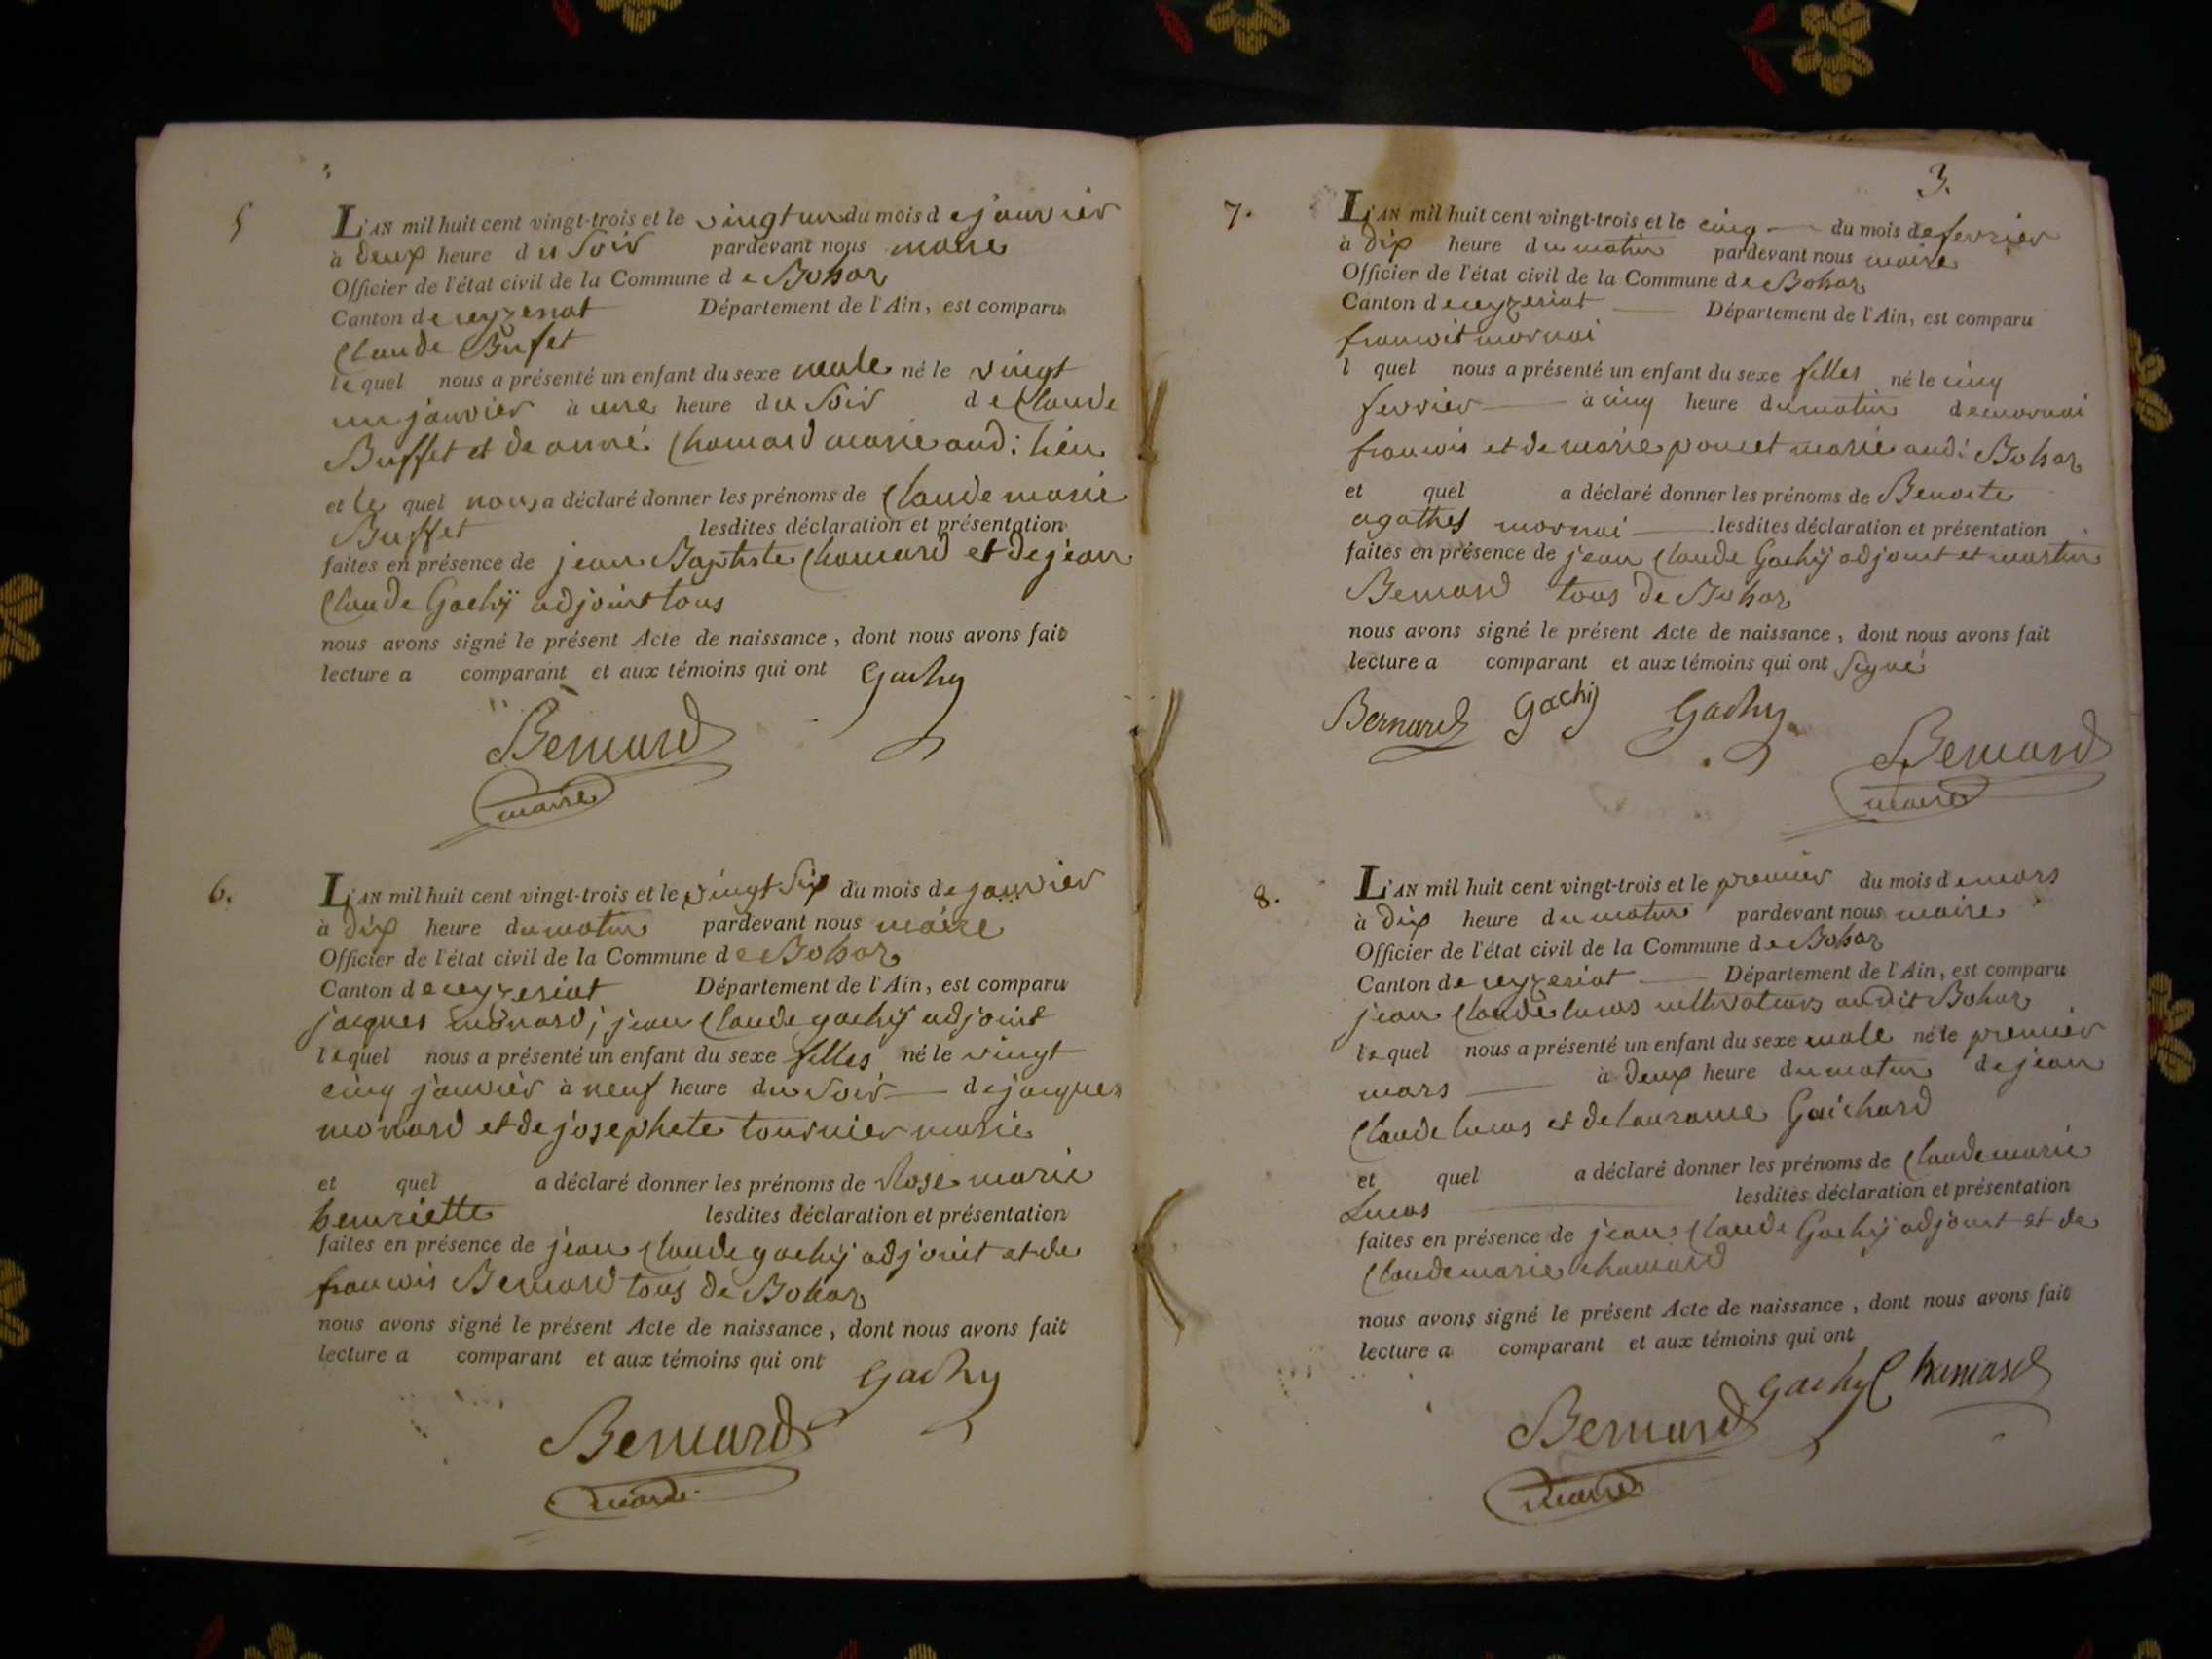 5
L'AN mil huit cent vingt-trois et le vingt un du mois de janvier
à deux heure du Soir pardevant nous maire
Officier de l'état civil de la Commune de Bohas
Canton de ceyzeriat Département de l'Ain, est comparu
Claude Bufet
lequel nous a présenté un enfant du sexe male né le vingt
un janvier à une heure du Soir de Claude
Buffet et de anne Chamard marie aud: lieu
et le quel nous a déclaré donner les prénoms de Claude marie
Buffet lesdites déclaration et présentation
faites en présence de jean Baptiste Chamard et de jean
Claude Gachÿ adjoint tous
nous avons signé le présent Acte de naissance, dont nous avons fait
lecture a comparant et aux témoins qui ont Gachy
Bernard
maire
6.
L'AN mil huit cent vingt-trois et le vingt Six du mois de janvier
à dix heure du matin pardevant nous maire
Officier de l'état civil de la Commune de Bohas
Canton de ceyzeriat Département de l'Ain, est comparu
jacques monard; jean Claude gachÿ adjoint
lequel nous a présenté un enfant du sexe filles né le vingt
cinq janvier à neuf heure du Soir de jacques
monard et de josephete tournier marie
et quel a déclaré donner les prénoms de Rose marie
henriette lesdites déclaration et présentation
faites en présence de jean Claude gachÿ adjoint et de
francois Bernard tous de Bohas
nous avons signé le présent Acte de naissance, dont nous avons fait
lecture a comparant et aux témoins qui ont Gachy
Bernard
maire
3.
7.
L'AN mil huit cent vingt-trois et le cinq du mois de fevrier
à dix heure du matin pardevant nous maire
Officier de l'état civil de la Commune de Bohas
Canton de ceyzeriat Département de l'Ain, est comparu
francoit mornai
l quel nous a présenté un enfant du sexe filles né le cinq
fevrier à cinq heure du matin de mornai
francois et de marie poncet marie aud: Bohas
et quel a déclaré donner les prénoms de Benoite
agathes mornai lesdites déclaration et présentation
faites en présence de jean Claude Gachÿ adjoint et martin
Bernard tous de Bohas
nous avons signé le présent Acte de naissance, dont nous avons fait
lecture a comparant et aux témoins qui ont Signé
Bernard Gachÿ Gachy
Bernard
maire
8.
L'AN mil huit cent vingt-trois et le premier du mois de mars
à dix heure du matin pardevant nous maire
Officier de l'état civil de la Commune de Bohas
Canton de ceyzeriat Département de l'Ain, est comparu
jean Claude lucas cultivateur audit Bohas
lequel nous a présenté un enfant du sexe male né le premier
mars à deux heure du matin de jean
Claude lucas et de Gaichard
et quel a déclaré donner les prénoms de Claude marie
Lucas lesdites déclaration et présentation
faites en présence de jean Claude Gachÿ adjoint et de
Claude marie chamard
nous avons signé le présent Acte de naissance, dont nous avons fait
lecture a comparant et aux témoins qui ont
Gachy Chamard
Bernard
maire